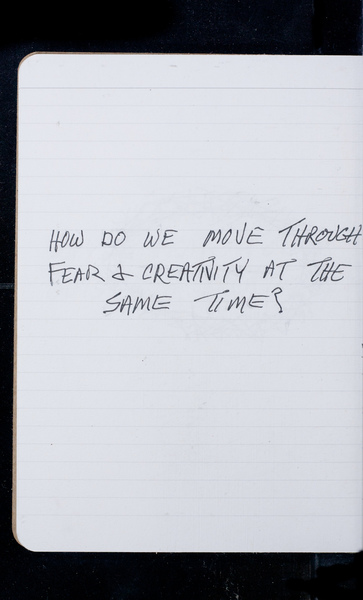 HOW DO WE MOVE THROUGH
FEAR & CREATIVITY AT THE
SAME TIME?